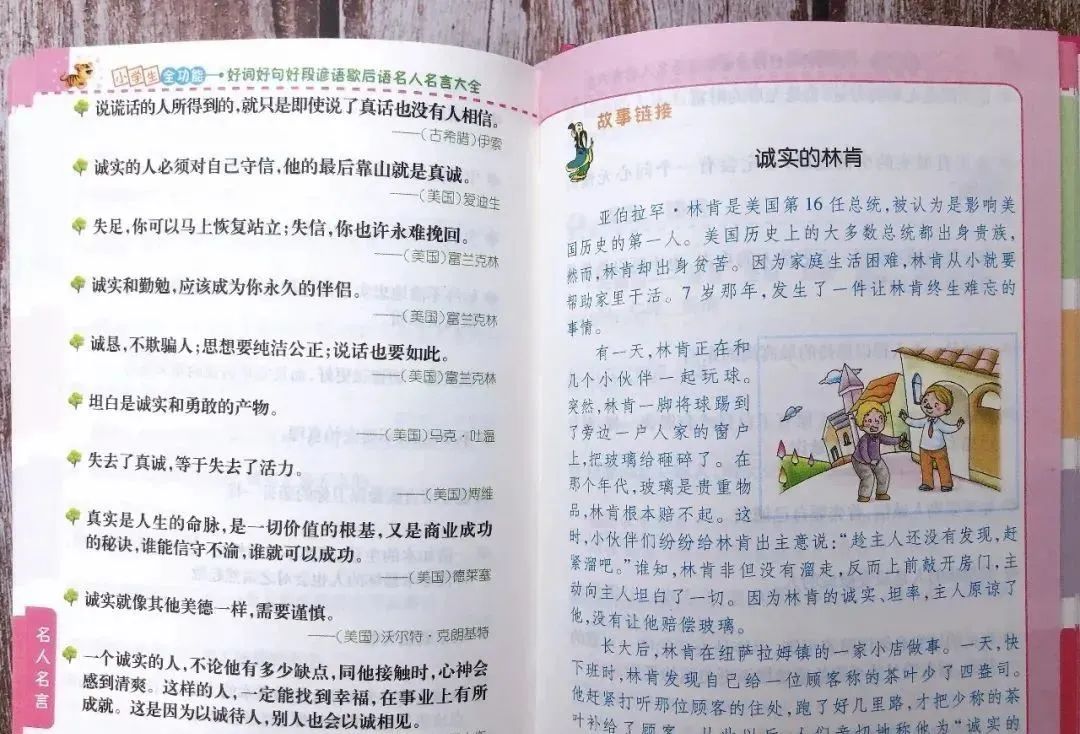 小学生全功能 好词好句好段谚语歇后语名人名言大全
说谎话的人所得到的,就只是即使说了真话也没有人相信。
——(古希腊)伊索
诚实的人必须对自己守信,他的最后靠山就是真诚。
——(美国)爱迪生
失足,你可以马上恢复站立;失信,你也许永难挽回。
——(美国)富兰克林
诚实和勤勉,应该成为你永久的伴侣。
——(美国)富兰克林
诚恳,不欺骗人;思想要纯洁公正;说话也要如此。
——(美国)富兰克林
坦白是诚实和勇敢的产物。
——(美国)马克·吐温
失去了真诚,等于失去了活力。
——(美国)博维
真实是人生的命脉,是一切价值的根基,又是商业成功
的秘诀,谁能信守不渝,谁就可以成功。
——(美国)德莱塞
诚实就像其他美德一样,需要谨慎。
——(美国)沃尔特·克朗基特
一个诚实的人,不论他有多少缺点,同他接触时,心神会
感到清爽。这样的人,一定能找到幸福,在事业上有所
成就。这是因为以诚待人,别人也会以诚相见。
名人名言
故事链接
诚实的林肯
亚伯拉罕·林肯是美国第16任总统,被认为是影响美
国历史的第一人。美国历史上的大多数总统都出身贵族,
然而,林肯却出身贫苦。因为家庭生活困难,林肯从小就要
帮助家里干活。7岁那年,发生了一件让林肯终生难忘的
事情。
有一天,林肯正在和
几个小伙伴一起玩球。
突然,林肯一脚将球踢到
了旁边一户人家的窗户
上,把玻璃给砸碎了。在
那个年代,玻璃是贵重物
品,林肯根本赔不起。这
时,小伙伴们纷纷给林肯出主意说:“趁主人还没有发现,赶
紧溜吧。”谁知,林肯非但没有溜走,反而上前敲开房门,主
动向主人坦白了一切。因为林肯的诚实、坦率,主人原谅了
他,没有让他赔偿玻璃。
长大后,林肯在纽萨拉姆镇的一家小店做事。一天,快
下班时,林肯发现自己给一位顾客称的茶叶少了四盎司。
他赶紧打听那位顾客的住处,跑了好几里路,才把少称的茶
叶补给了顾客。从此以后,人们亲切地称他为“诚实的